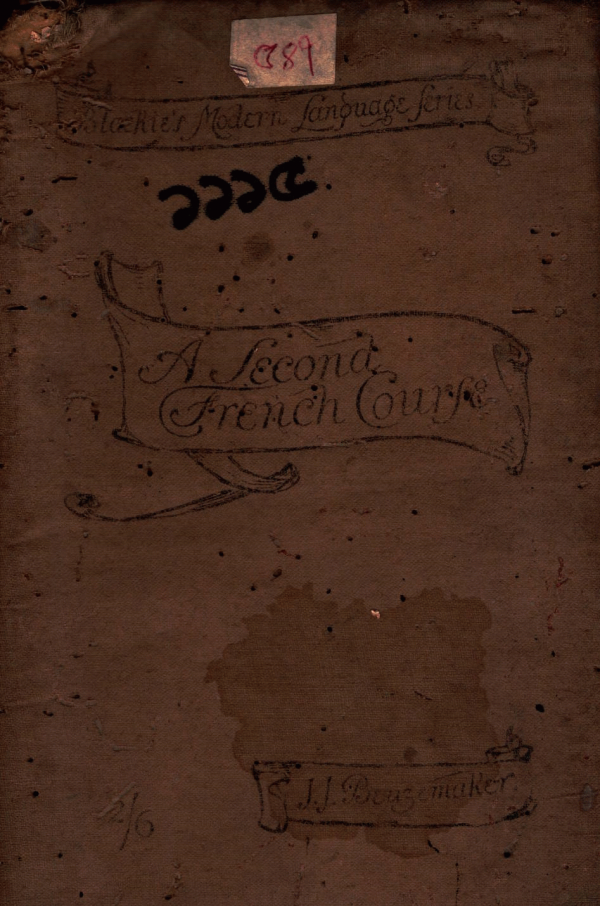 Blackie's Modern Language Series
A Second
French Course
J. J. Beuzemaker
2/6